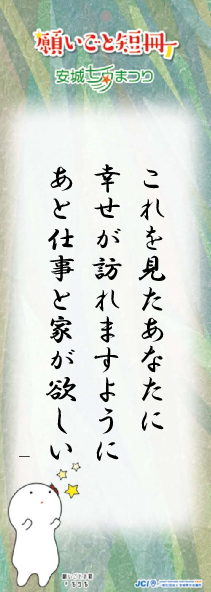 願いごと短冊
安城七夕まつり
これを見たあなたに
幸せが訪れますように
あと仕事と家が欲しい
JCI